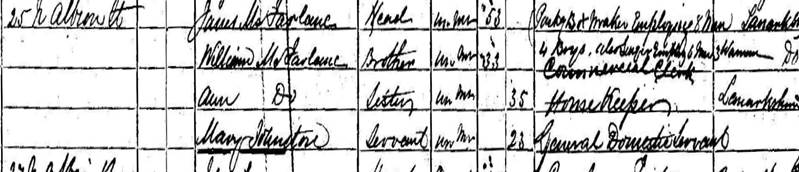 25 N Albion St James McFarlane Head unmr 53 Packg Box Maker Employing 8 Men Lanarksh
William McFarlane Brother unmr 33 4 Boys 3 Women Do
Commercial Clerk
Ann Do Sister unmr 35 House Keeper Lanarkshire
Mary Johnstone Servant unmr 23 General Domestic Servant
27 N Albion